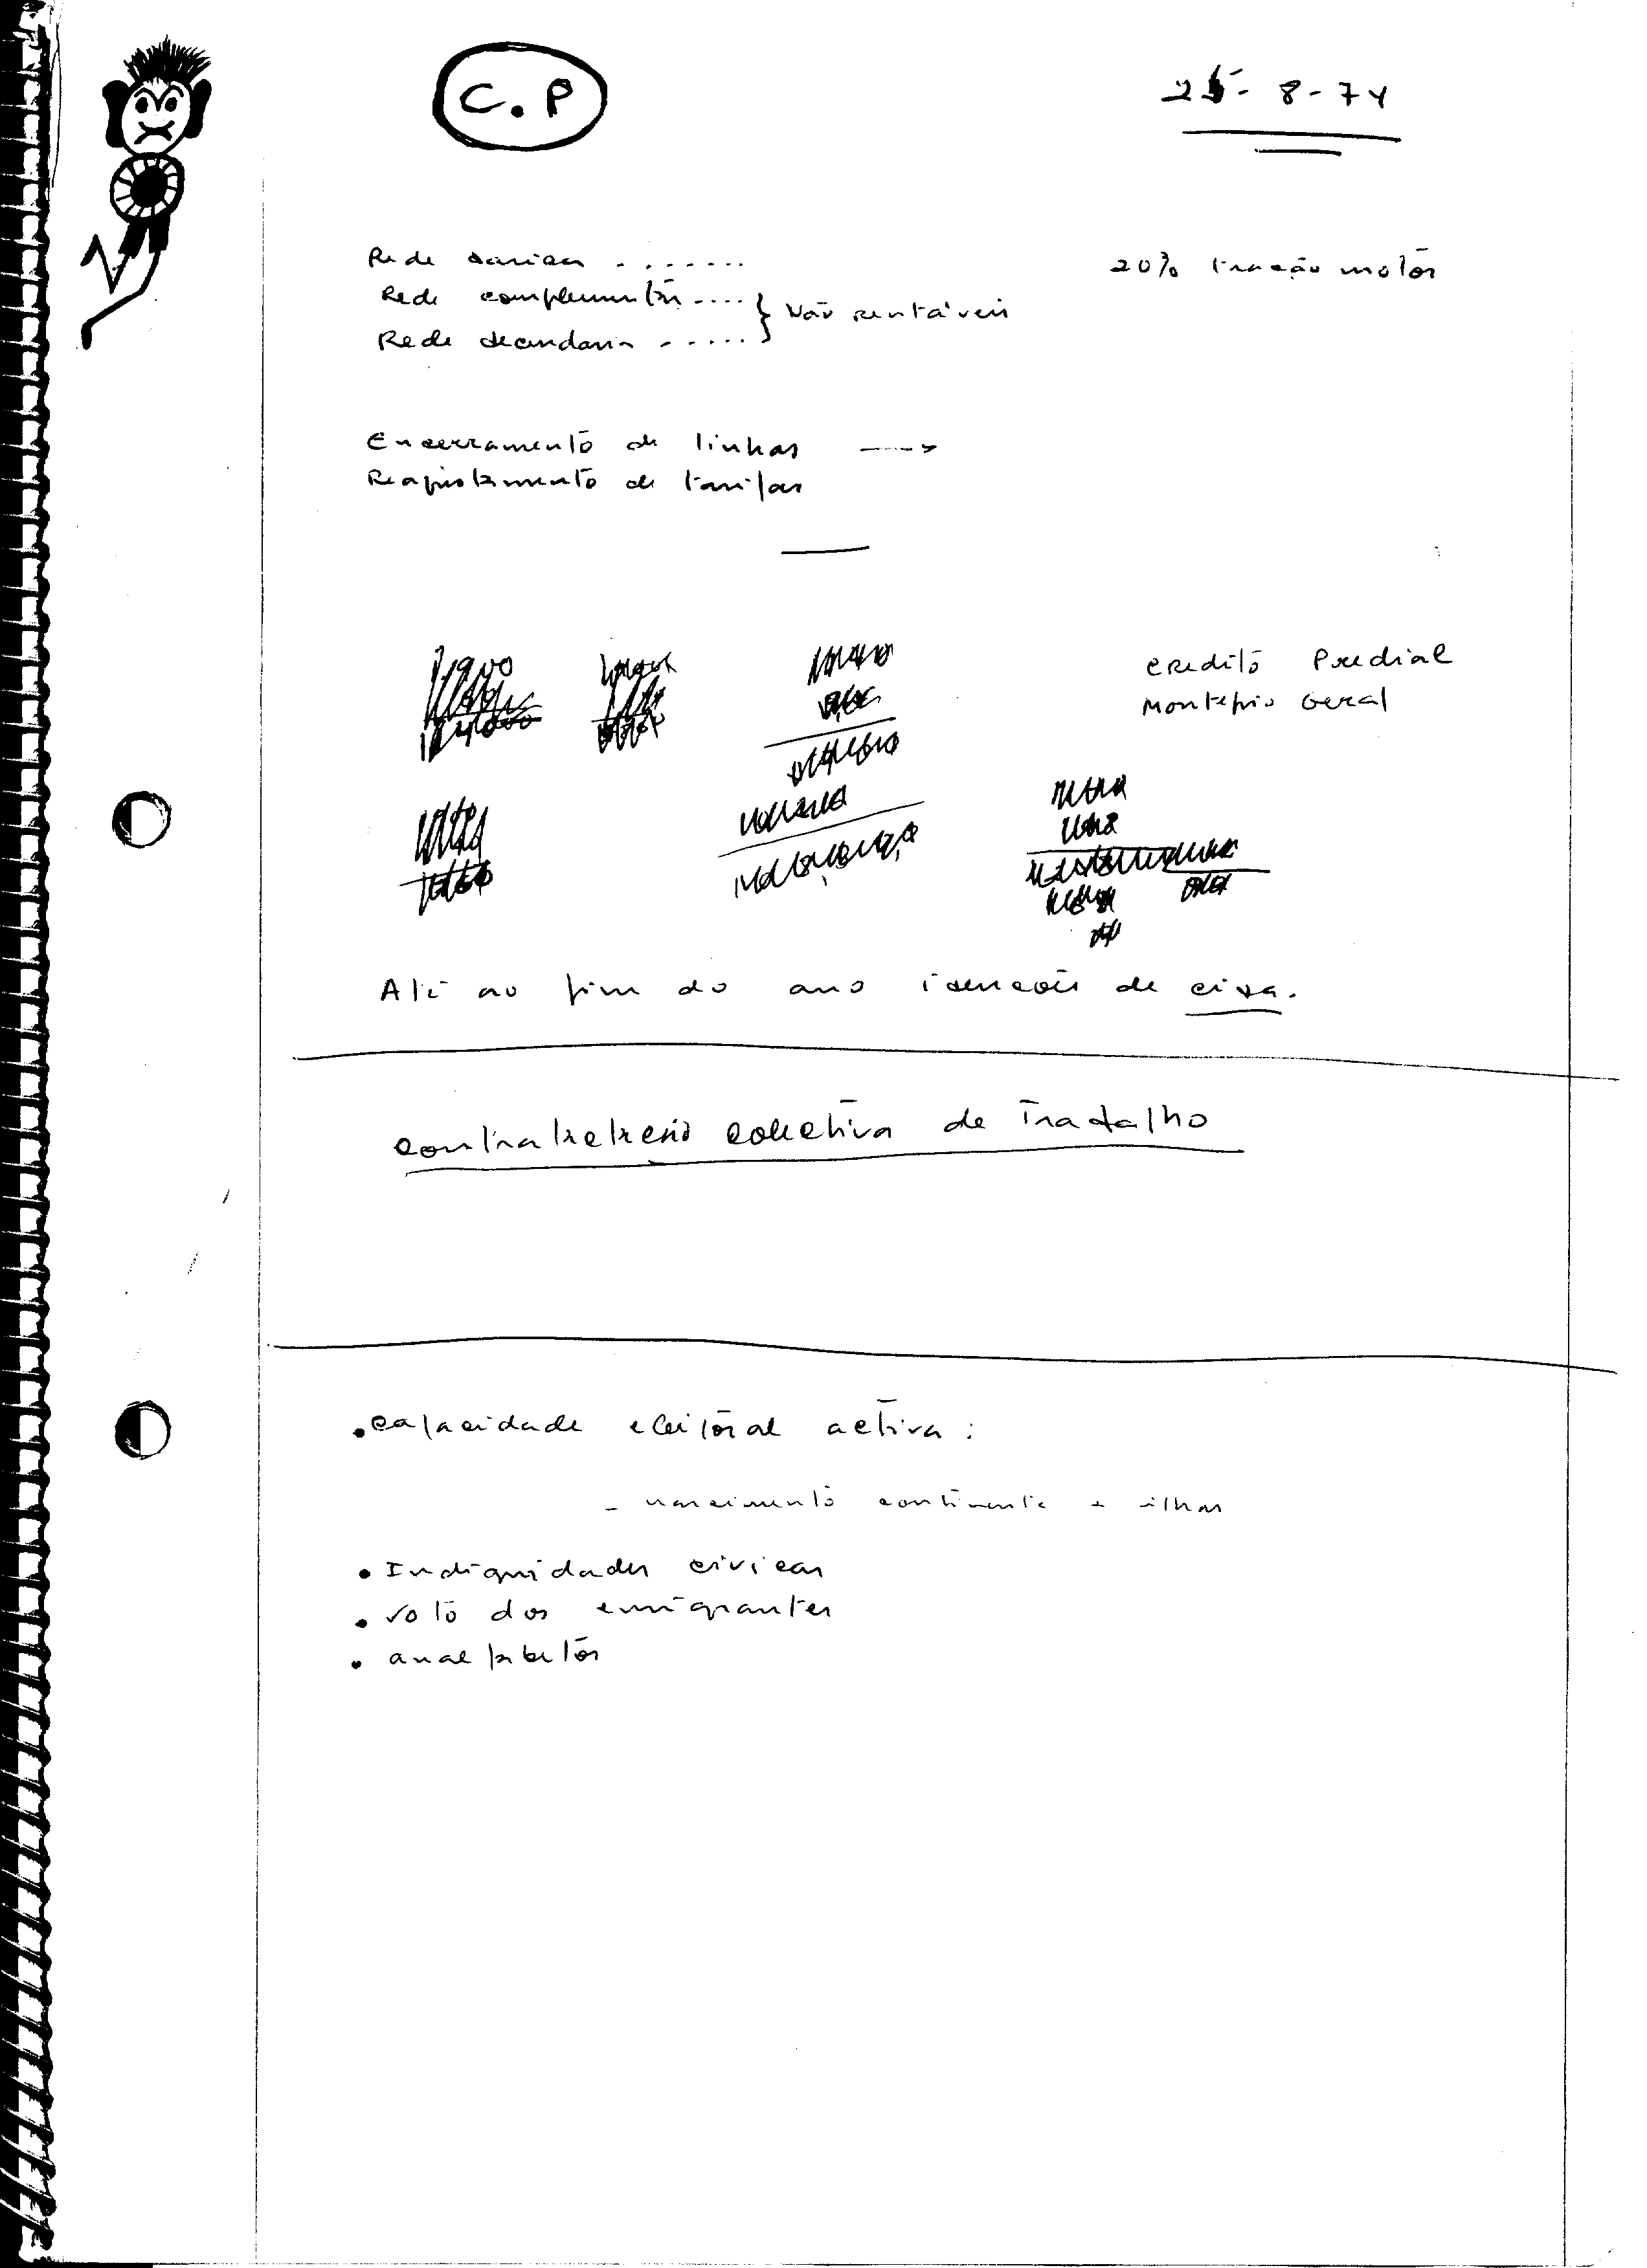 C.P
25-8-74
Rede basica .......
20% tracção motor
Rede complementar ....
} Não rentáveis
Rede secundaria .....
Encerramento de linhas --->
Reajustamento de tarifas
Credito Predial
Montepio Geral
Até ao fim do ano isenções de cisa.
coletiva de Trabalho
• capacidade eleitoral activa:
- nascimento continente e ilhas
• Indignidades civicas
• voto dos emigrantes
• analfabetos